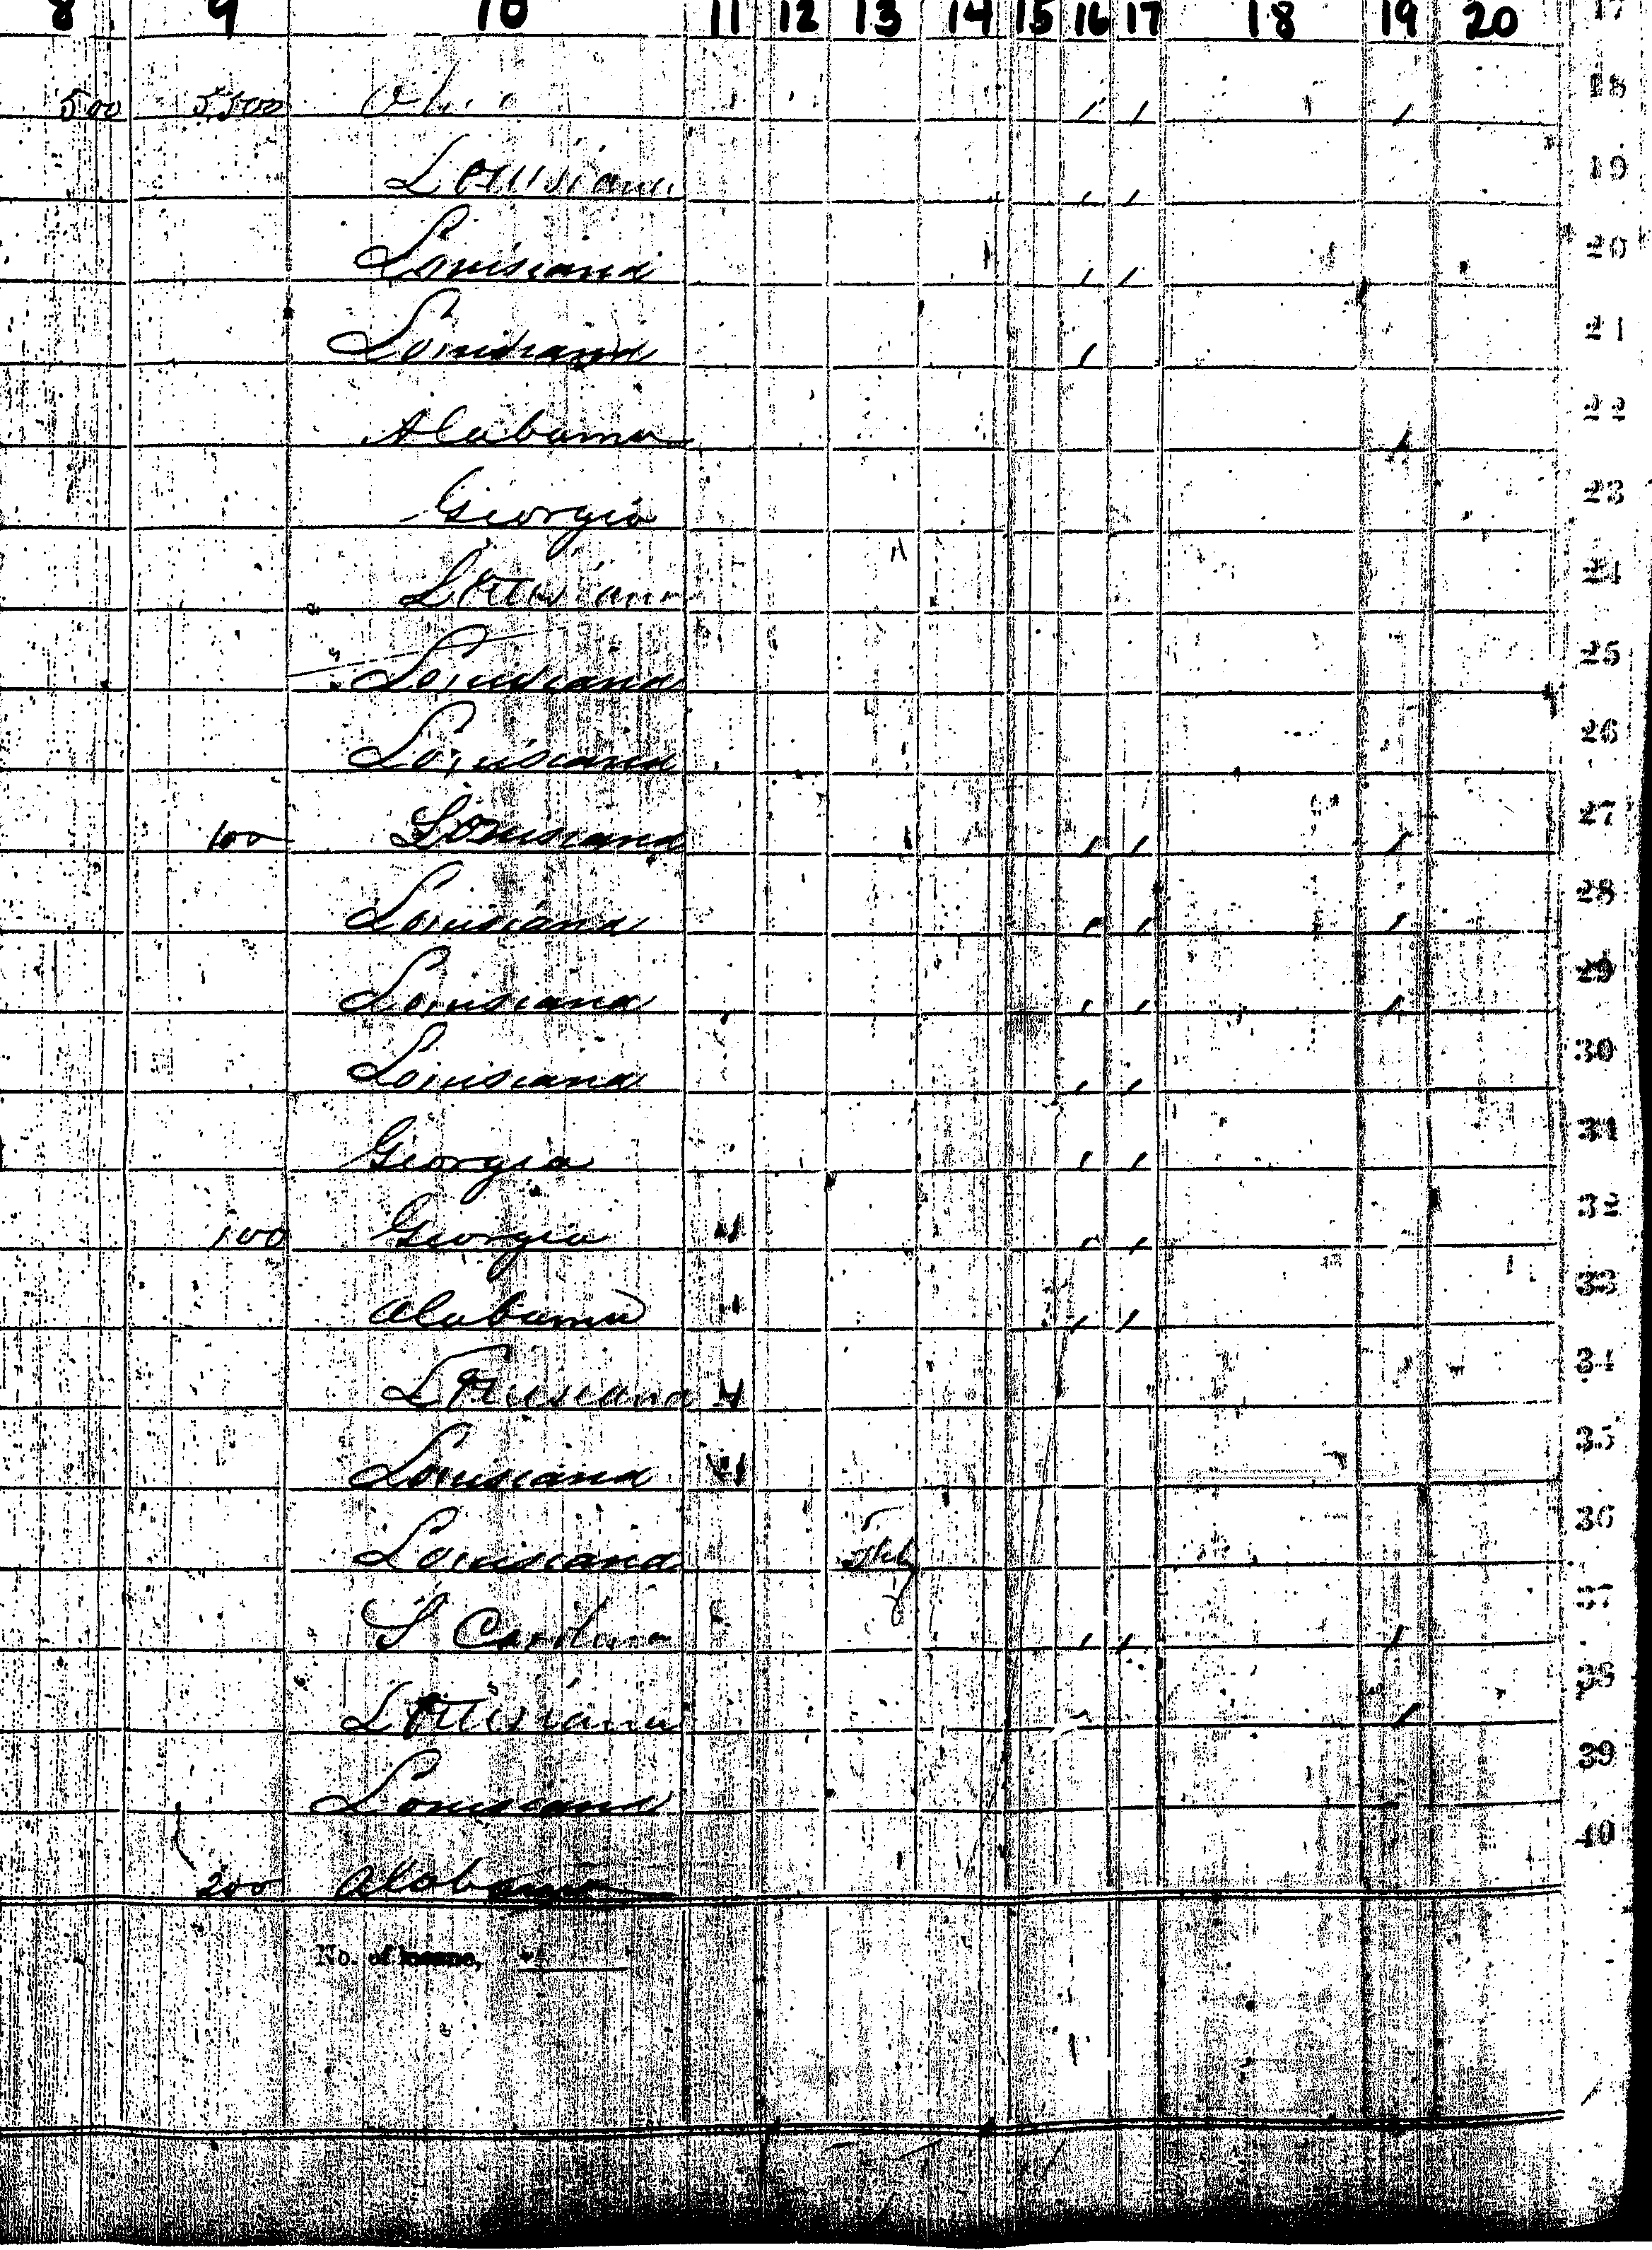 8 9 10 11 12 13 14 15 16 17 18 19 20 17
500 5500 Ohio / / / 18
Louisiana / / 19
Louisiana / / 20
Louisiana / 21
Alabama / 22
Georgia 23
Louisiana 24
Louisiana 25
Louisiana 26
100 Louisiana / / / 27
Louisiana / / / 28
Louisiana / / / 29
Louisiana / / 30
Georgia / / 31
100 Georgia / / 32
Alabama / / 33
Louisiana 34
Louisiana 35
Louisiana 36
S Carolina / / / 37
Louisiana / / 38
Louisiana 39
200 Alabama 40
No. of insane,